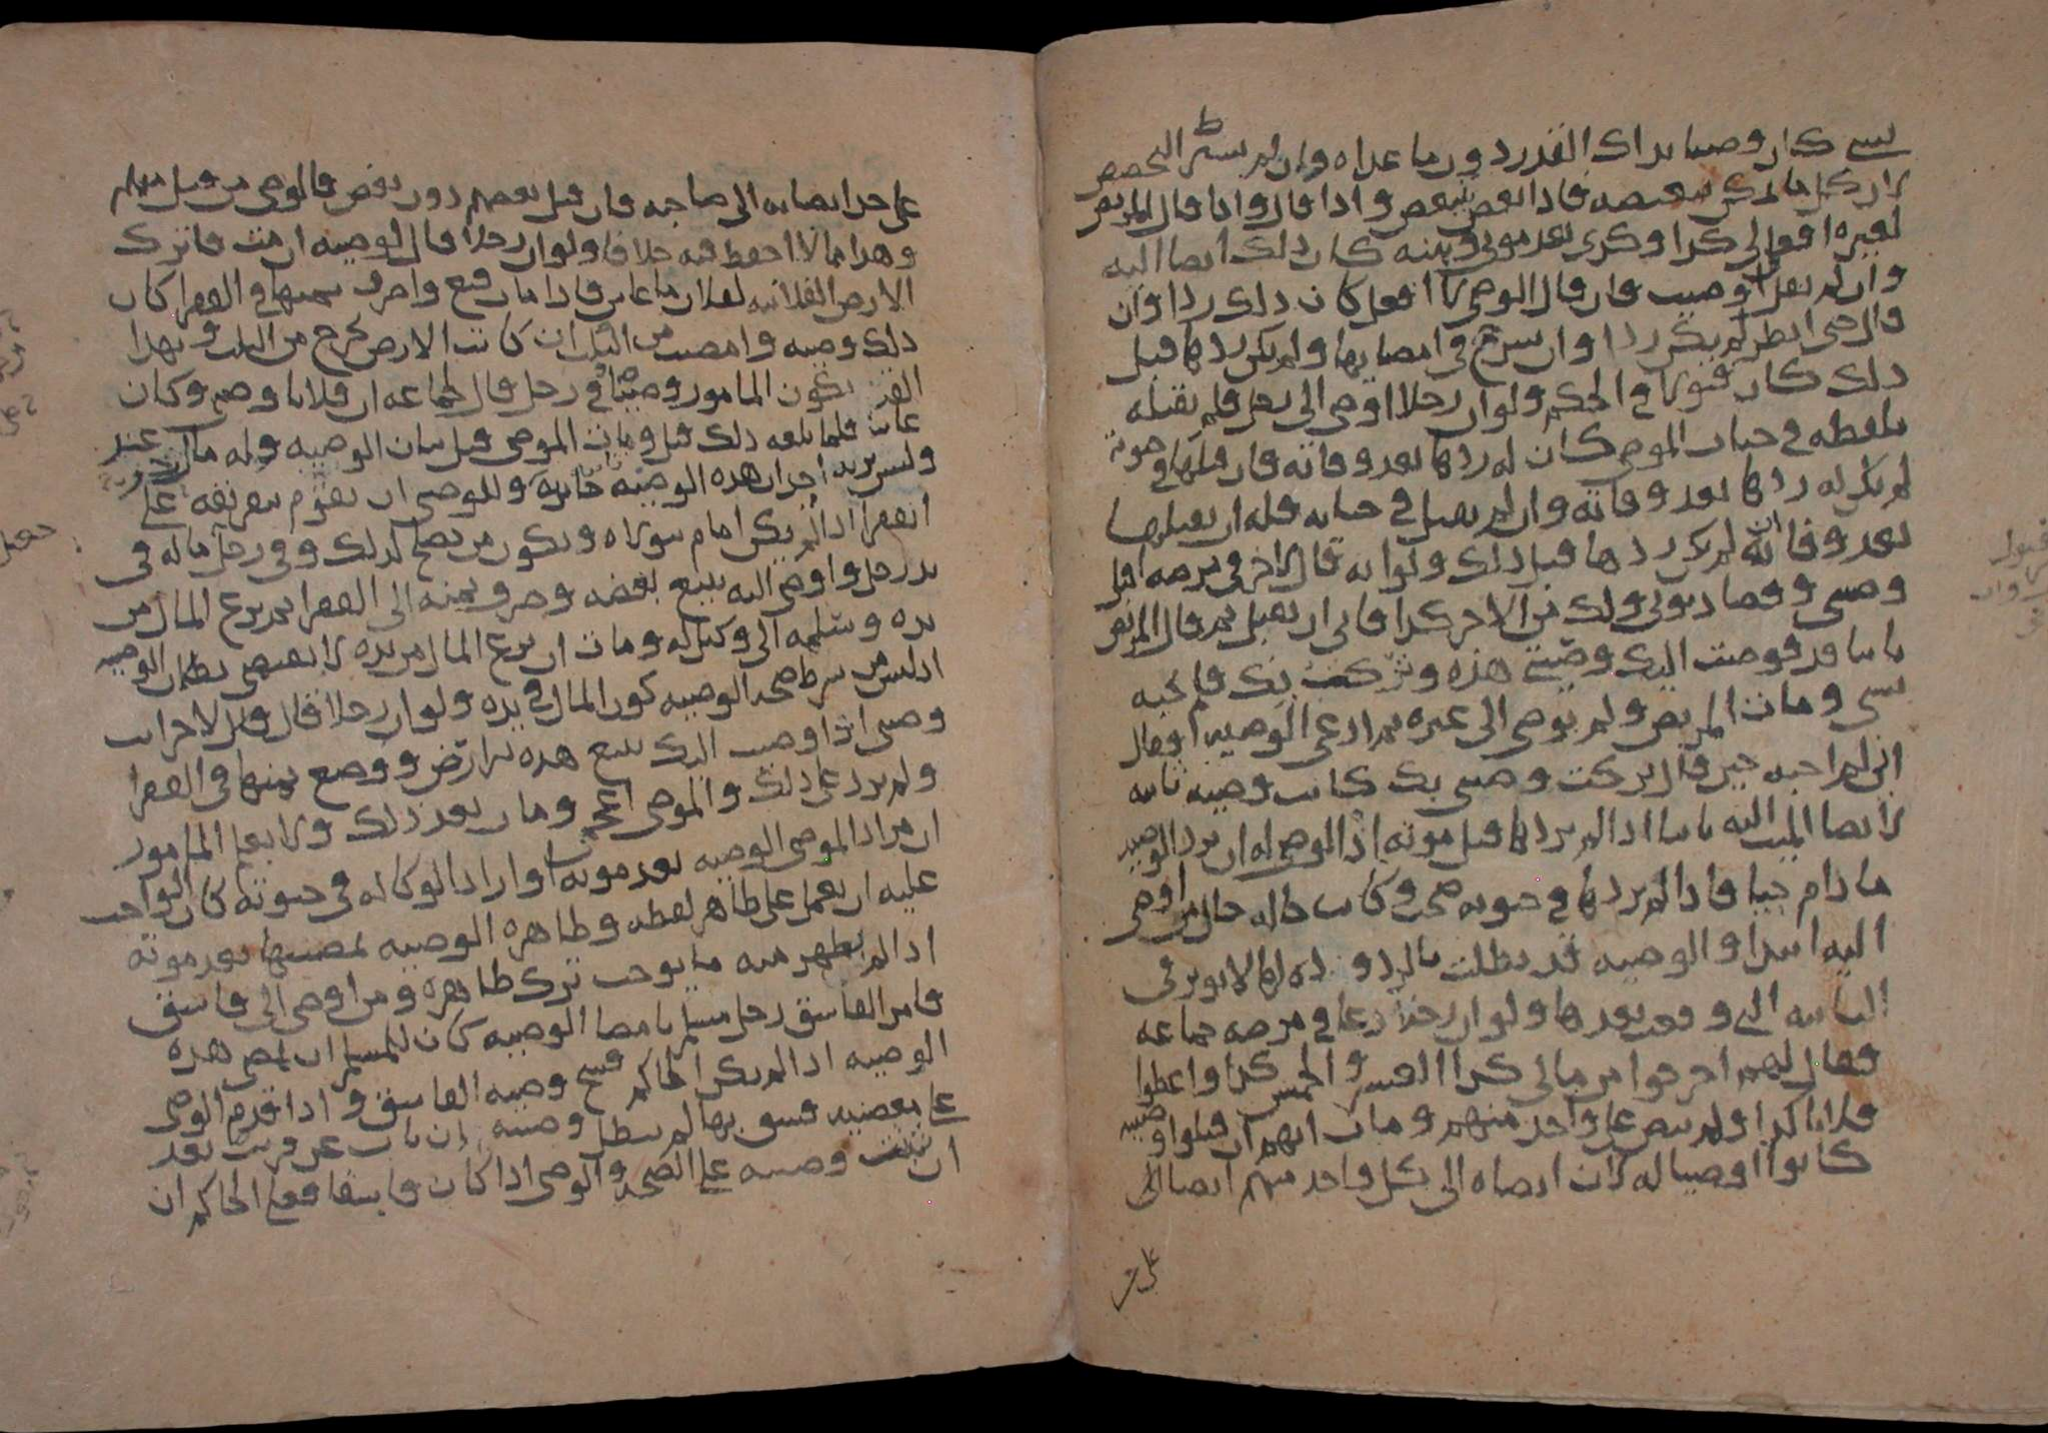 بشي كان وصيا بذلك القدر دون ما عداه وان لم
لان كل ما يمكن تبعيضه فاذا بعض تبعض واذا قال وانا قال المريض
لغيره افعل لي كذا وكذى بعد موتي وبينه كان ذلك ايصا اليه
وان لم يقل اوصيت فان قال الوصي لا افعل كان ذلك ردا وان
قال حتى انظر لم يكن ردا وان شرع في امضايها ولم يكن ردها قبل
ذلك كان قبولا في الحكم ولو ان رجلا اوصى الى رجل فلم يقبله
بلفظه في حياة الموصي كان له ردها بعد وفاته فان قبلها في حيوته
لم يكن له ردها بعد وفاته وان لم يقبل في حياته فله ان يقبلها
بعد وفاته ان لم يكن ردها قبل ذلك ولو انه قال لاخر في مرضه اقبل
وصيتي وقضا ديوني ولك من الاجر كذا فابى ان يقبل ثم قال المريض
ثانيا قد فوضت اليك وصيتي هذه وتركت بك فلم يجبه
بشي ومات المريض ولم يوصي الى غيره ثم ادعى الوصية او قال
اني لم اجبه حين قال تركت وصيتي بك كانت وصيه ثابته
لايصا الميت اليه ثانيا اذا لم يردها قبل موته اذ الموصى له ان يرد الوصيه
ما دام حيا فاذا لم يردها في حيوته صحت وكانت حاله حال من اوصى
اليه ابتدا والوصيه قد بطلت بالرد و لا يوثر في
الثانيه التي وقعت بعدها ولو ان رجلا دعا في مرضه جماعه
فقال لهم اخرجوا من مالي كذا العشر والخمس كذا واعطوا
فلانا كذا ولم ينص على واحد منهم ومات انهم ان قبلوا وصيته
كانوا اوصيا له لان ايصاه الى كل واحد منهم ايصا الى
على حد ايصايه الى صاحبه فان قبل بعضهم دون بعض فالوصي من قبل منهم
وهذا مما لا احفظ فيه خلافا ولو ان رجلا قال لوصيه ان مت فاترك
الارض الفلانيه لفلان ما عاش فاذا مات فبع واصرف ثمنها في الفقرا كان
ذلك وصيه وامضيت من الثلث ان كانت الارض تخرج من الثلث وبهذا
القدر يكون المامور وصيا في رجل قال لجماعه ان فلانا وصيي وكان
غايبا فلما بلغه ذلك قبل ومات الموصي قبل بيان الوصيه وله مال عند
وليس يريد اجزات هذه الوصيه وللوصي ان يقوم بتفريقه على
الفقرا اذا لم يكن امام يتولاه ويكون من يصلح لذلك وفي رجل ماله في
يد رجل واوصى اليه ببيع بعضه وصرف ثمنه الى الفقرا ثم نزع المال من
يده وسلمه الى وكيل له ومات ان نزع المال من يده لا يقتضي بطلان الوصيه
اذ ليس من شرط صحه الوصيه كون المال في يده ولو ان رجلا قال لاخر انت
وصيي اذا اوصيت اليك ببيع هذه الارض ووضع ثمنها في الفقرا
ولم يزد على ذلك والموصي اعجم ومات بعد ذلك ولا يعلم المامور
ان مراد الموصي الوصيه بعد موته او اراد الوكاله في حيوته كان الواجب
عليه ان يعمل على ظاهر لفظه وظاهره الوصيه لمضيها بعد موته
اذا لم يظهر منه ما يوجب ترك ظاهره ومن اوصى الى فاسق
فامر الفاسق رجل مسلم بامضا الوصيه كان للمسلم ان يمضي هذه
الوصيه اذا لم يكن الحاكم فسخ وصيه الفاسق واذا اقدم الوصي
على معصيه فسق بها لم تبطل وصيته ان تاب عن قرب بعد
ان تثبت وصيته على الصحه والوصي اذا كان فاسقا فعلى الحاكم ان